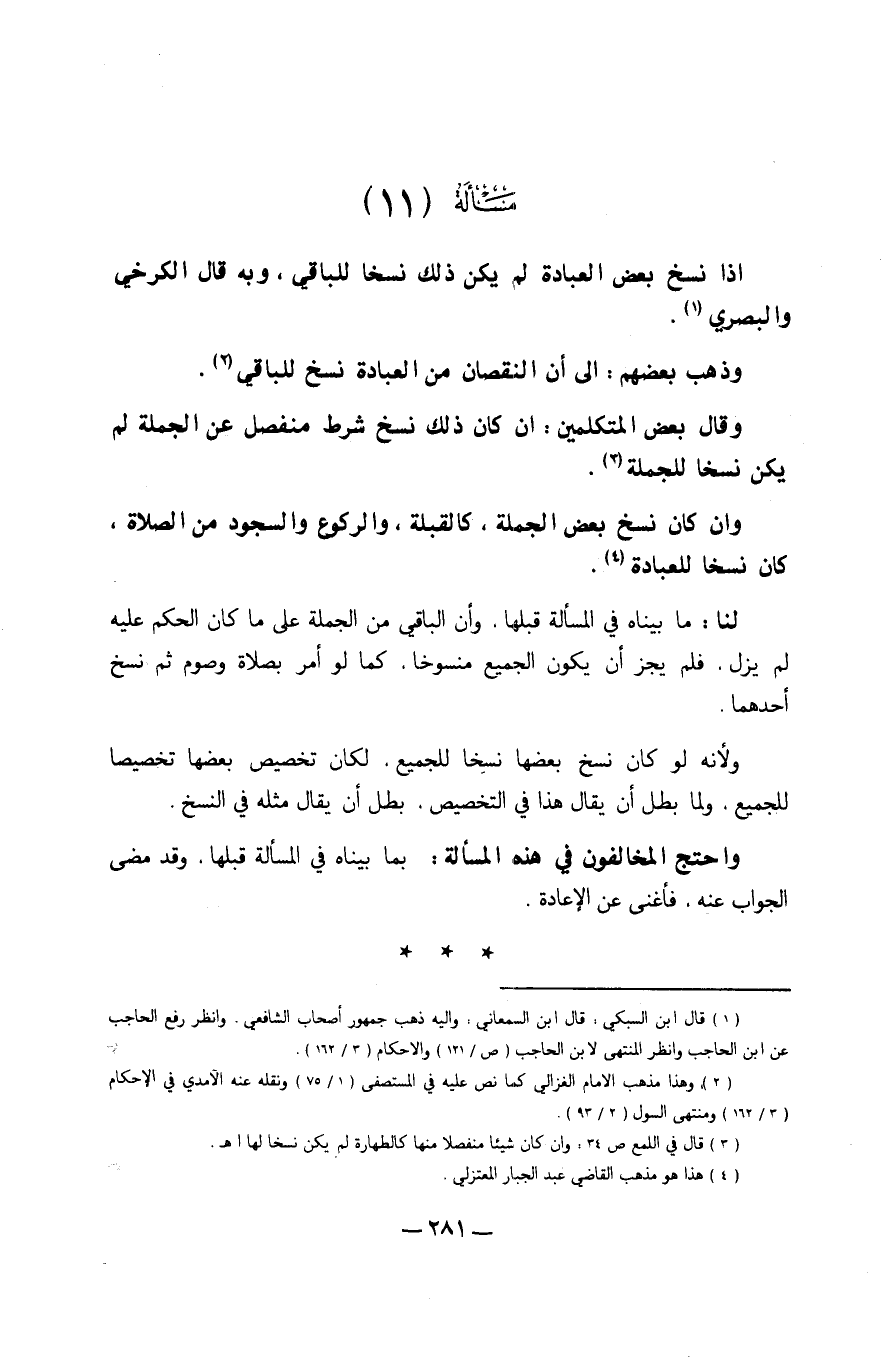 مسألة (١١)
اذا نسخ بعض العبادة لم يكن ذلك نسخا للباقي ، وبه قال الكرخي
والبصري (١) .
وذهب بعضهم : الى أن النقصان من العبادة نسخ للباقي (٢) .
وقال بعض المتكلمين : ان كان ذلك نسخ شرط منفصل عن الجملة لم
يكن نسخا للجملة (٣) .
وان كان نسخ بعض الجملة ، كالقبلة ، والركوع والسجود من الصلاة ،
كان نسخا للعبادة (٤) .
لنا : ما بيناه في المسألة قبلها . وأن الباقي من الجملة على ما كان الحكم عليه
لم يزل . فلم يجز أن يكون الجميع منسوخا . كما لو أمر بصلاة وصوم ثم نسخ
أحدهما .
ولأنه لو كان نسخ بعضها نسخا للجميع . لكان تخصيص بعضها تخصيصا
للجميع . ولما بطل أن يقال هذا في التخصيص . بطل أن يقال مثله في النسخ .
واحتج المخالفون في هذه المسألة : بما بيناه في المسألة قبلها . وقد مضى
الجواب عنه . فأغنى عن الإعادة .
* * *
( ١ ) قال ابن السبكي : قال ابن السمعاني : واليه ذهب جمهور أصحاب الشافعي . وانظر رفع الحاجب
عن ابن الحاجب وانظر المنتهى لابن الحاجب ( ص / ١٢١ ) والاحكام ( ٣ / ١٦٢ ) .
( ٢ ) وهذا مذهب الامام الغزالي كما نص عليه في المستصفى ( ١ / ٧٥ ) ونقله عنه الآمدي في الإحكام
( ٣ / ١٦٢ ) ومنتهى السول ( ٢ / ٩٣ ) .
( ٣ ) قال في اللمع ص ٣٤ : وان كان شيئا منفصلا منها كالطهارة لم يكن نسخا لها ا هـ .
( ٤ ) هذا هو مذهب القاضي عبد الجبار المعتزلي .
— ٢٨١ —